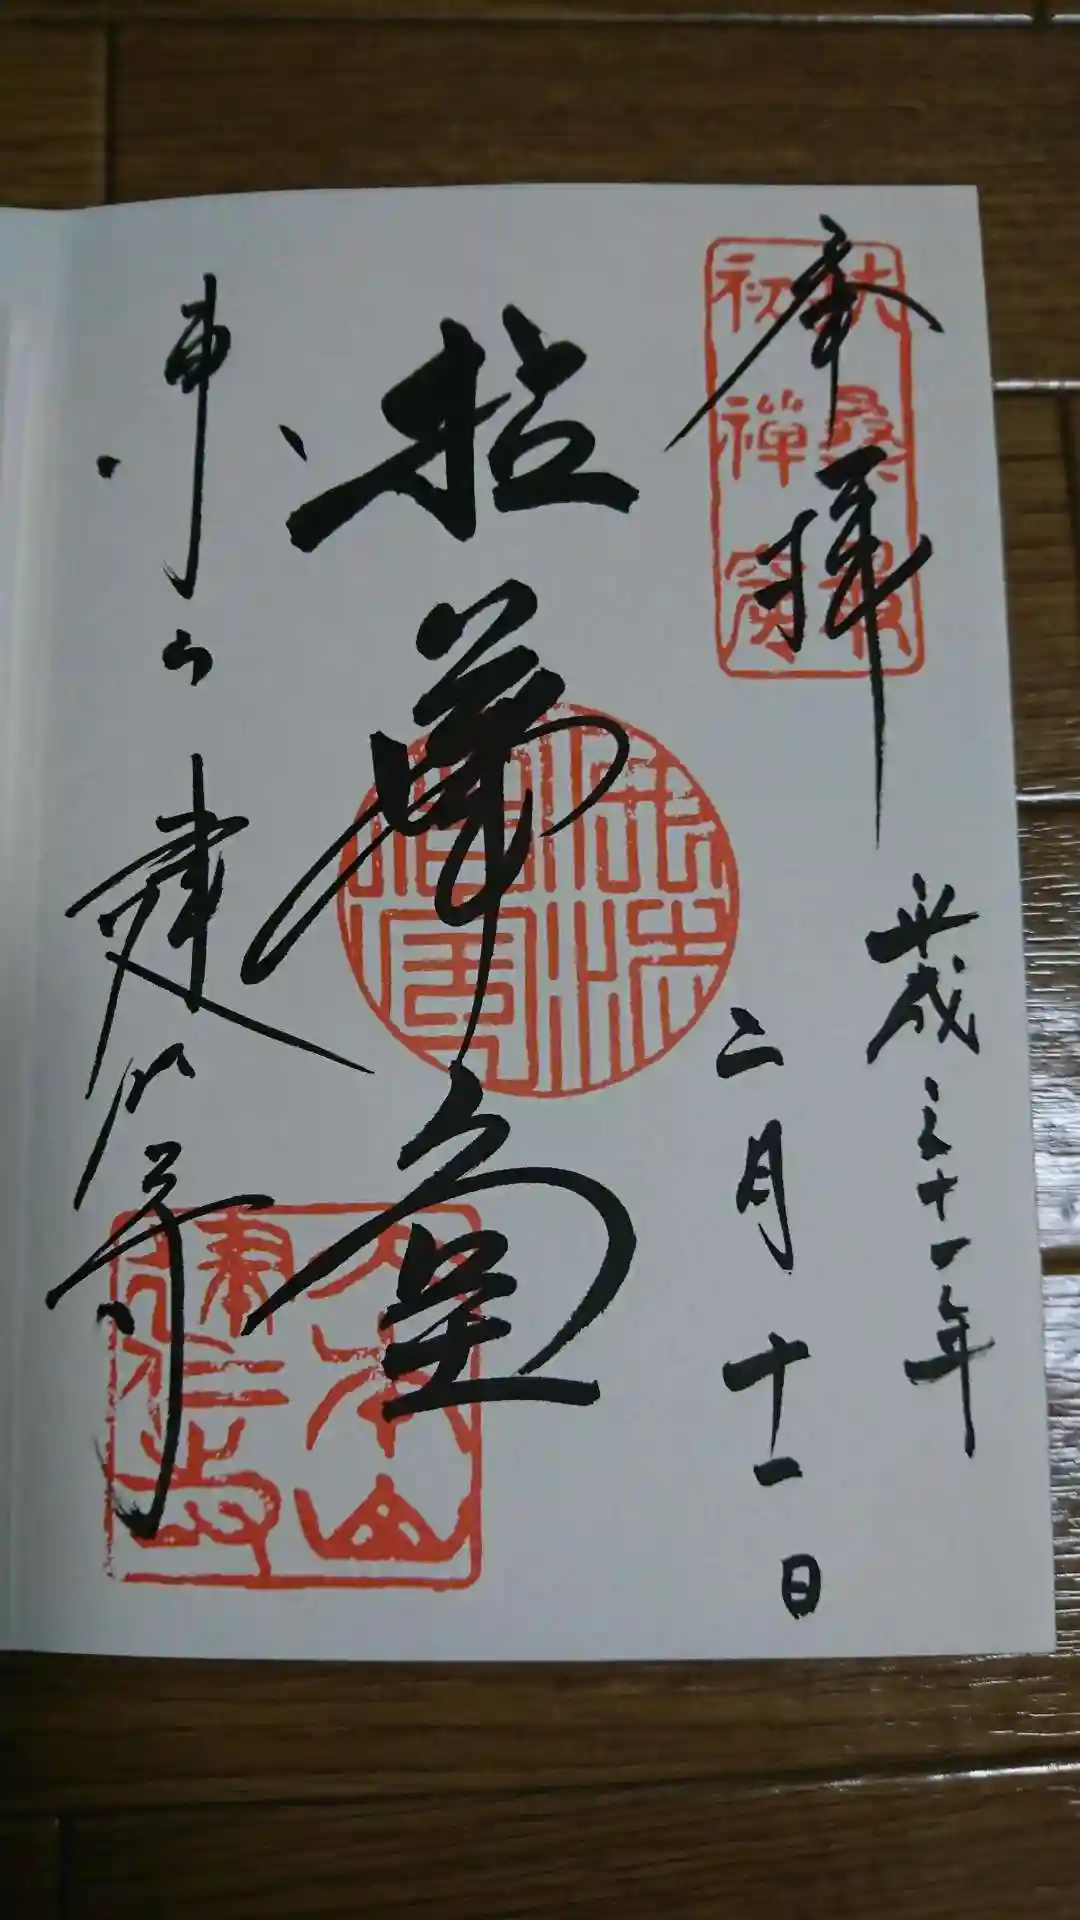 奉拝
扶桑最
初禅窟
平成三十一年
二月十一日
拈華堂
東山建仁寺
大本山
建仁寺